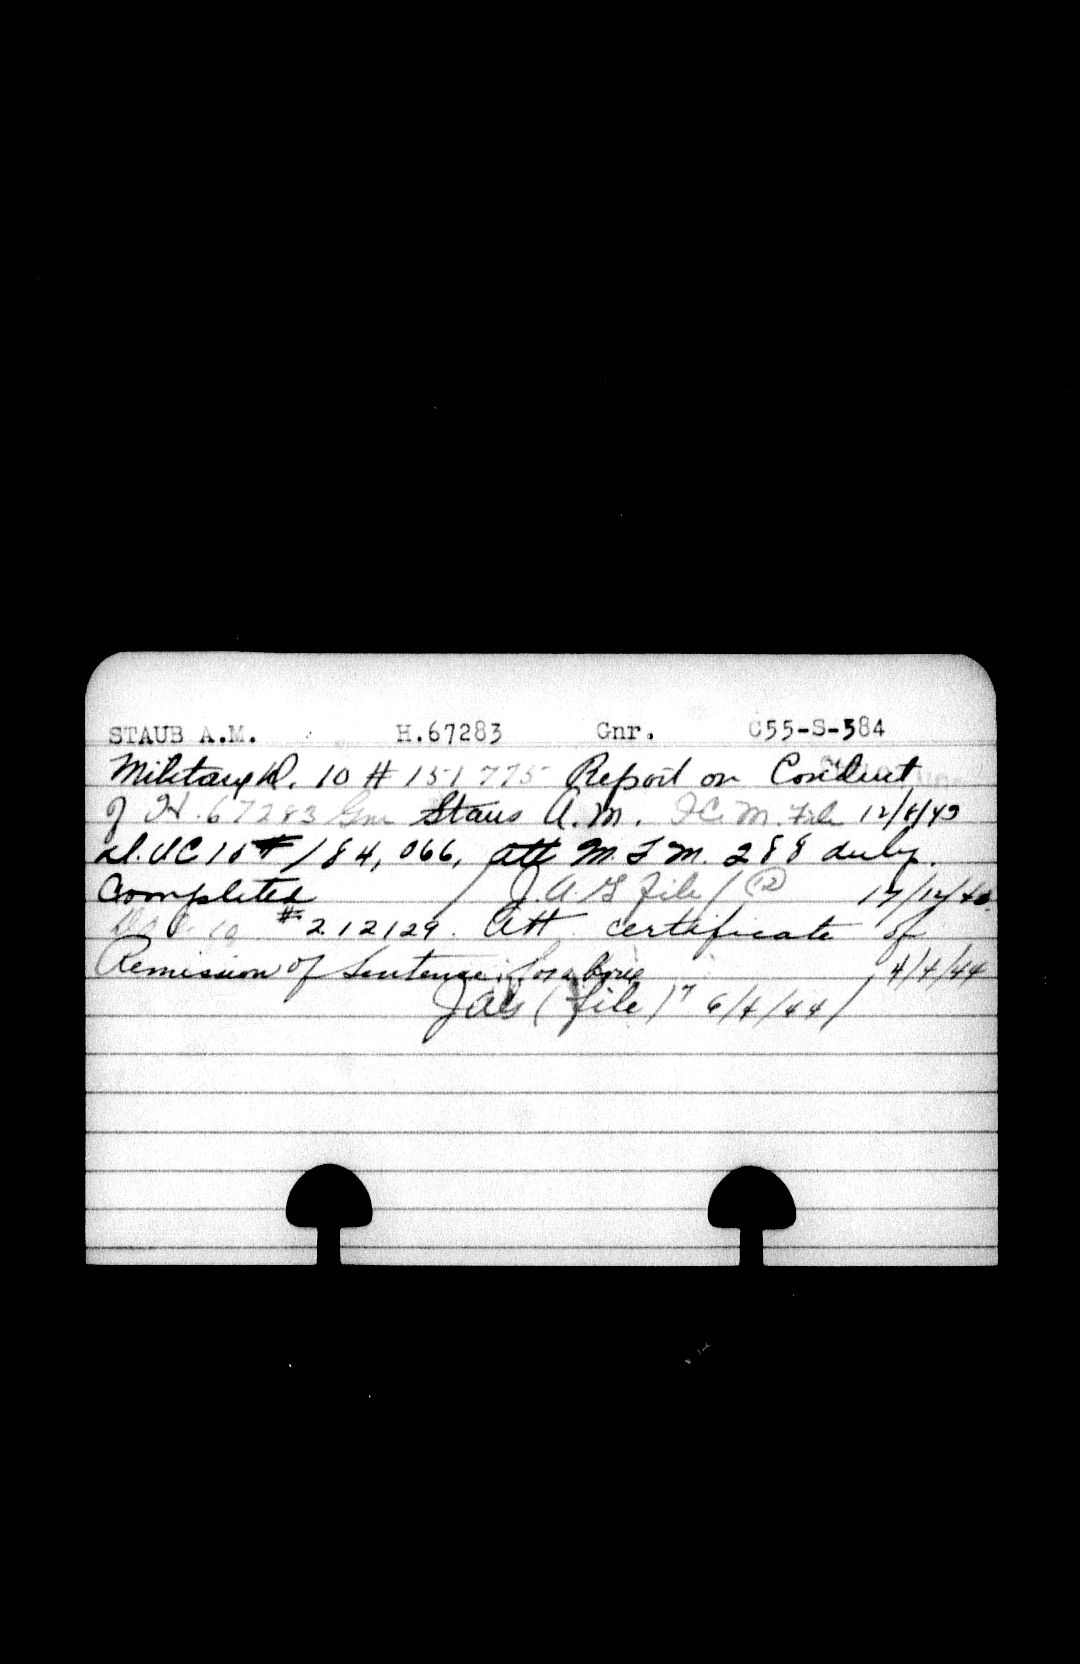 STAUB A.M. H.67283 Gnr. C55-S-384
Military D. 10 # 151775 Report on Conduct
of H. 67283 Gnr Staus A.M. File 12/8/43
D.O.C 10 # 184,066, att M.F.M. 288 duly.
Completed / J.A.G File / (12) 17/12/43
D.O.C. 10 # 212129. Att certificate of
Remission of Sentence, 4/4/44
JAG (file) 17 6/4/44/